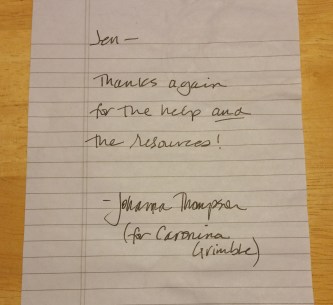 Jen—
Thanks again
for the help and
the resources!
- Johanna Thompson
(for Caronina
Grimble)